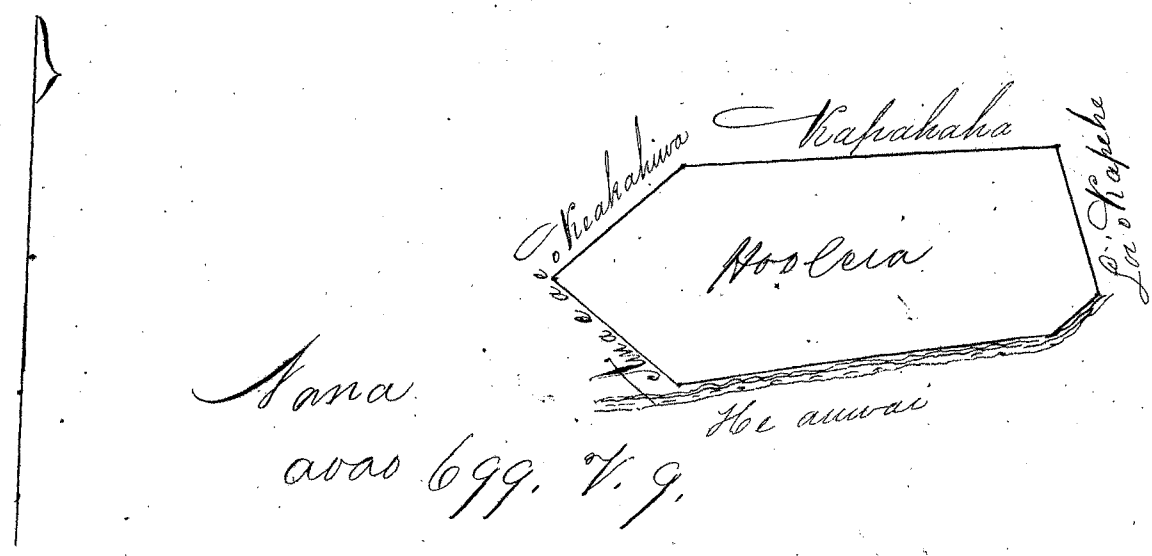 Kapahaha
o Keakahiwa
Loi o Kapehe
Hooleia
Aina e ae
He auwai
Nana
aoao 699. V. 9.